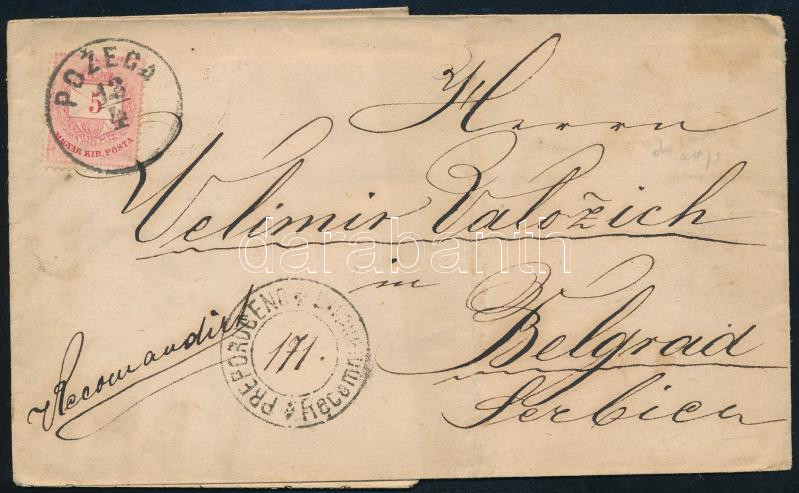 POŽEGA
12
4
5
MAGYAR KIR. POSTA
Herrn
Velimir Valožich
in
Belgrad
Serbien
Recomandirt
PREPORUČENO
Recom
171.
darabanth